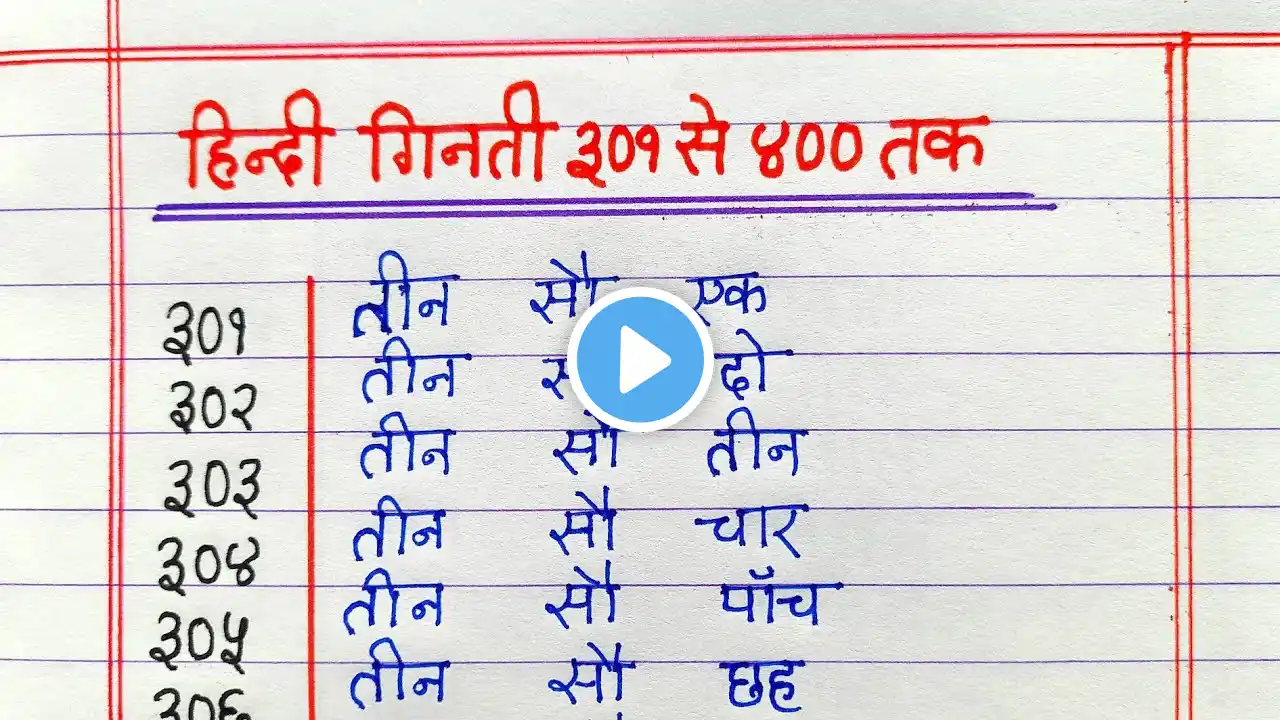 हिन्दी गिनती ३०१ से ४०० तक
३०१ तीन सौ एक
३०२ तीन दो
३०३ तीन सौ तीन
३०४ तीन सौ चार
३०५ तीन सौ पाँच
३०६ तीन सौ छह